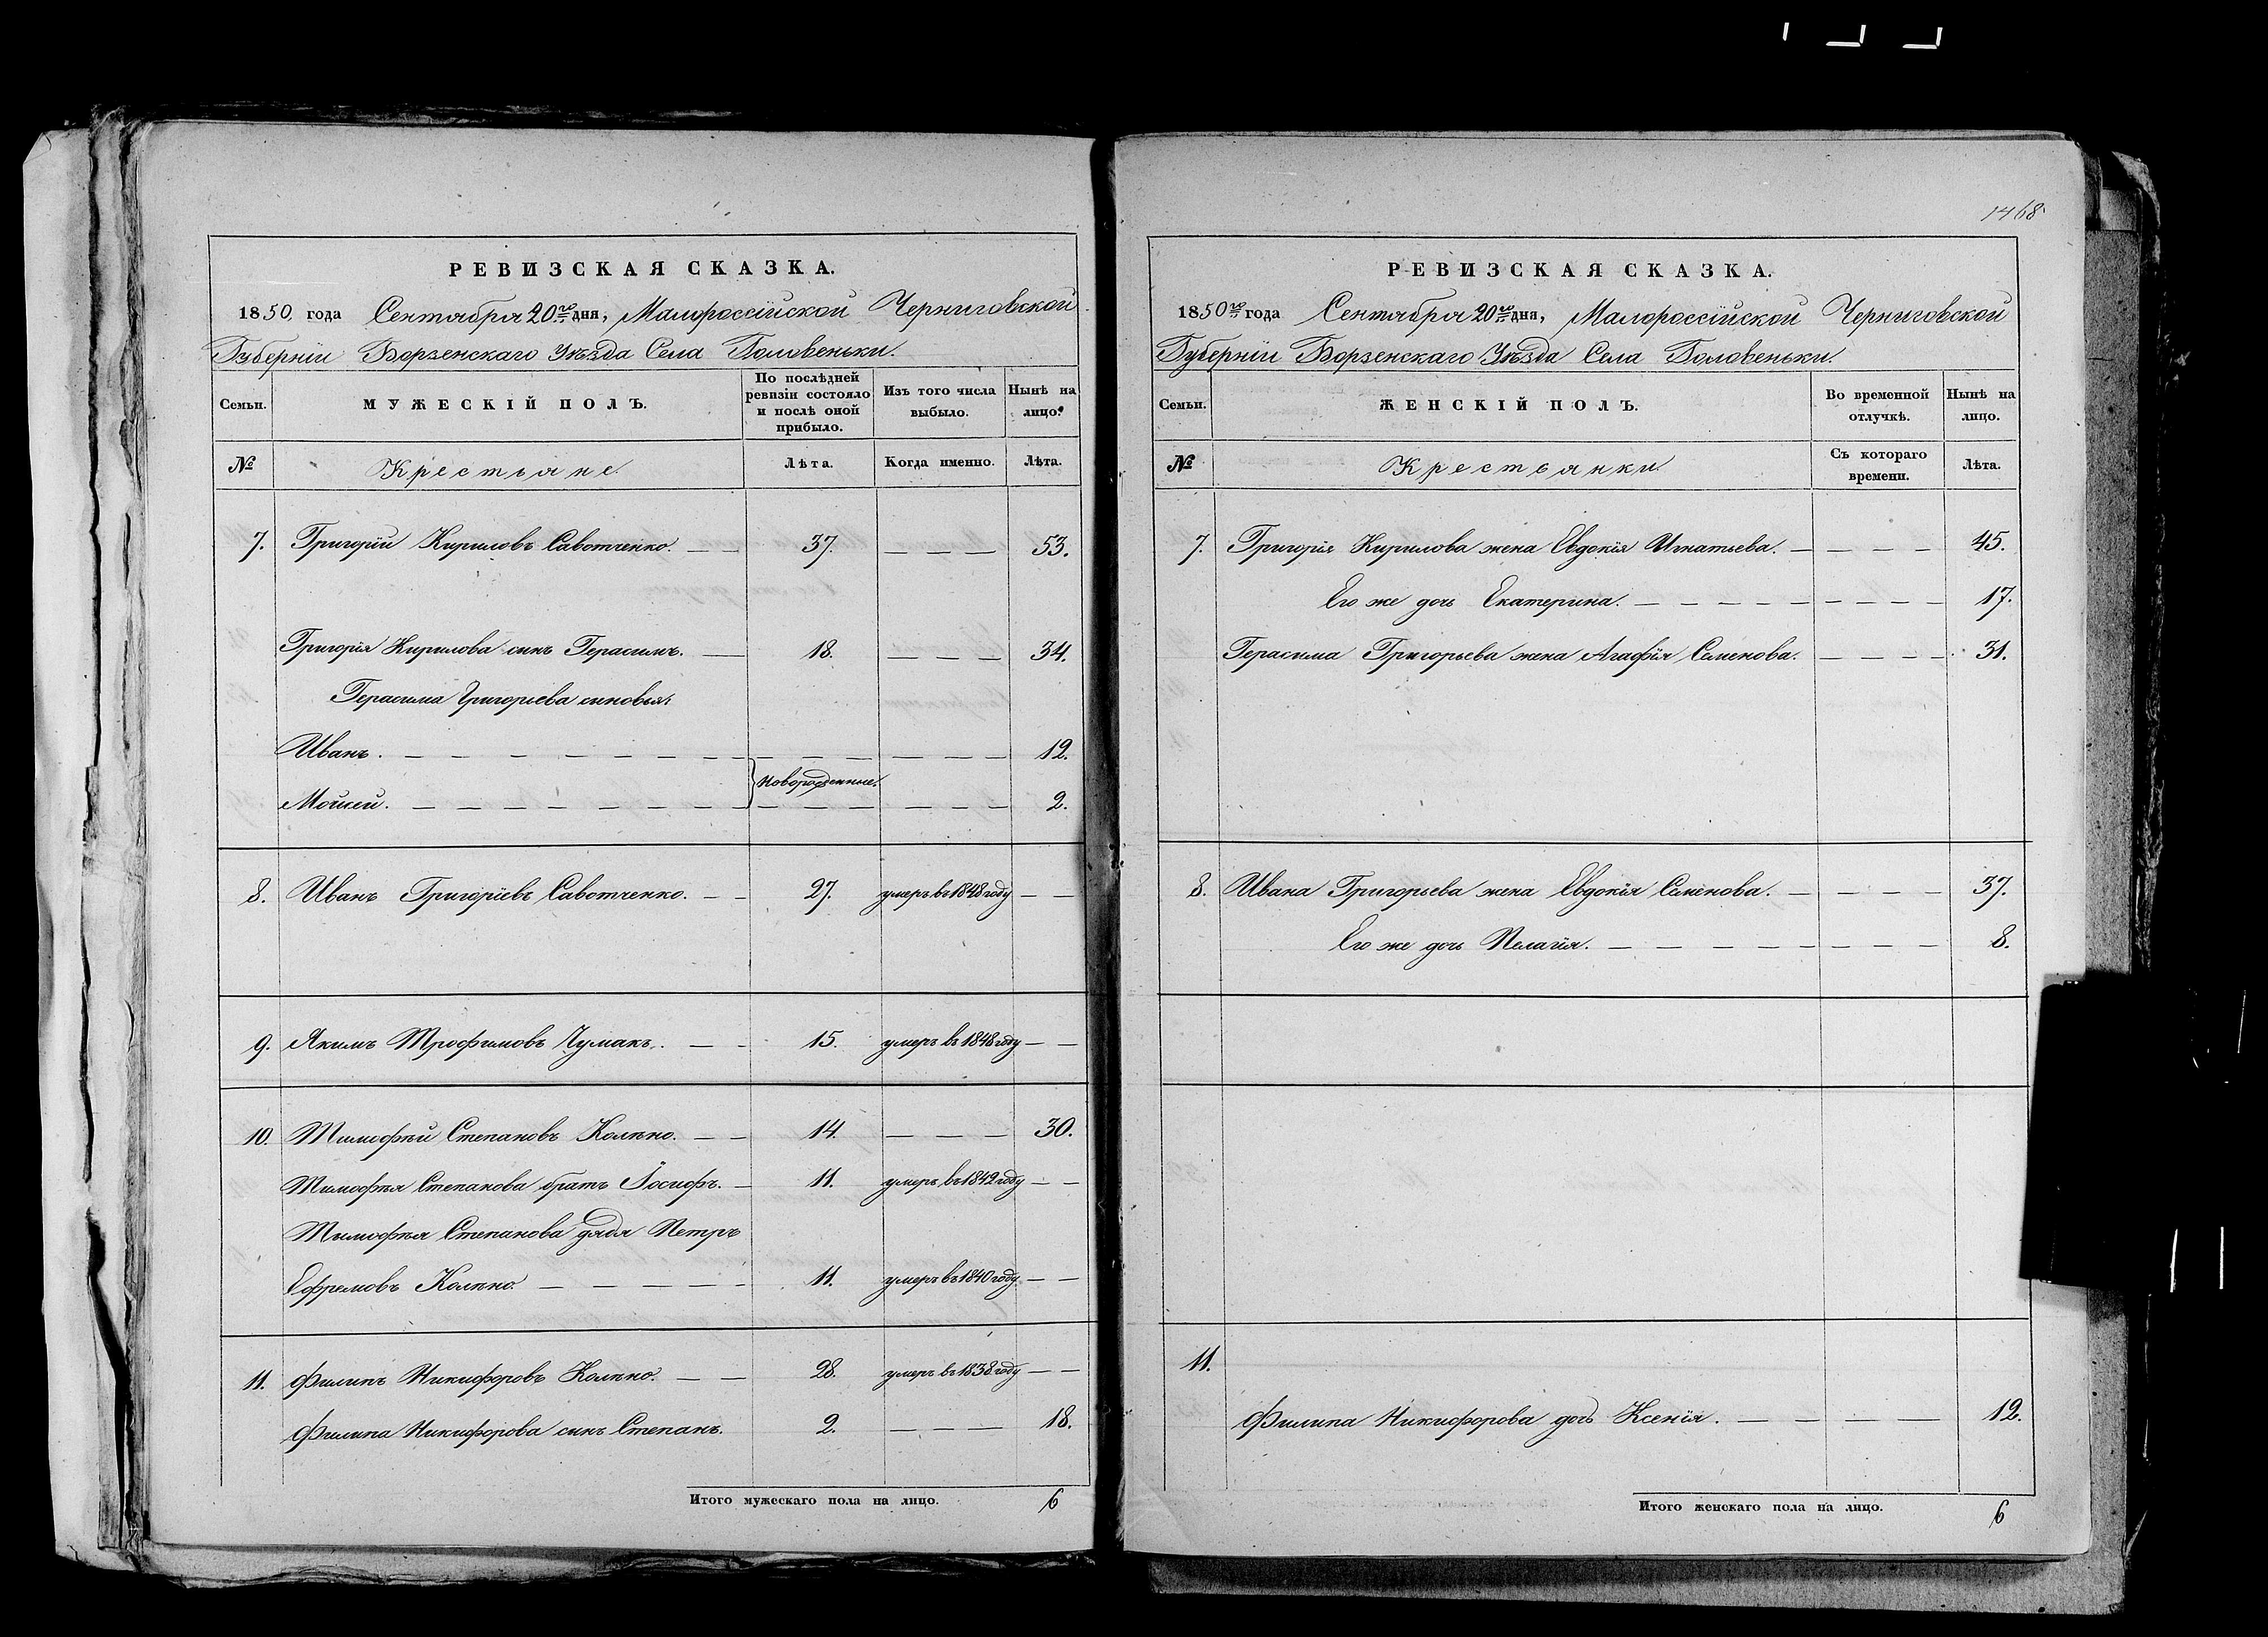 РЕВИЗСКАЯ СКАЗКА.
1850 года Сентября 20го дня, Малороссійской Черниговской
Губерніи Борзенскаго Уѣзда Села Головеньки.
Семьи. МУЖЕСКІЙ ПОЛЪ. По послѣдней ревизіи состояло и послѣ оной прибыло. Изъ того числа выбыло. Нынѣ на лицо.
№ Крестьяне. Лѣта. Когда именно. Лѣта.
7. Григорій Кириловъ Савотченко. — — 37. — — — 53.
Григорія Кирилова синъ Герасимъ. — 18. — — — 34.
Герасима Григорьева синовья:
Иванъ. — — — 12.
Новорожденные.
Мойсей. — — — 2.
8. Иванъ Григоріевъ Савотченко. — — 27. умеръ въ 1848 году — —
9. Якимъ Трофимовъ Чумакъ. — — 15. умеръ въ 1848 году — —
10. Тимофѣй Степановъ Колѣно. — — 14. — — — 30.
Тимофѣя Степанова братъ Іосифъ. — 11. умеръ въ 1842 году — —
Тимофѣя Степанова дядя Петръ
Ефремовъ Колѣно. — — — — 11. умеръ въ 1840 году. — —
11. Филипъ Никифоровъ Колѣно. — — 28. умеръ въ 1838 году — —
Филипа Никифорова синъ Степанъ. 2. — — — 18.
Итого мужескаго пола на лицо. 6
1468
РЕВИЗСКАЯ СКАЗКА.
1850го года Сентября 20го дня, Малороссійской Черниговской
Губерніи Борзенскаго Уѣзда Села Головеньки.
Семьи. ЖЕНСКІЙ ПОЛЪ. Во временной отлучкѣ. Нынѣ на лицо.
№ Крестьянки. Съ котораго времени. Лѣта.
7. Григорія Кирилова жена Евдокія Игнатьева. — — — — 45.
Его же дочь Екатерина. — — — — 17.
Герасима Григорьева жена Агафія Семенова. — — — — 31.
8. Ивана Григорьева жена Евдокія Семенова. — — — — 37.
Его же дочь Пелагія. — — — — 8.
11.
Филипа Никифорова дочь Ксенія. — — — — 12.
Итого женскаго пола на лицо. 6